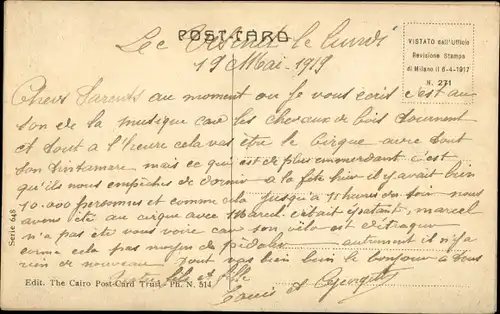 POST-CARD
Le Vésinet le lundi
19 Mai 1919
VISTATO dall'Ufficio
Revisione Stampa
di Milano il 6-4-1917
N. 271
Chers Parents au moment ou je vous ecris c'est au
son de la musique car les chevaux de bois tournent
et tout a l'heure cela vas être le cirque avec tout
son tintamare mais ce qui est de plus emmerdant c'est
qu'ils nous empêches de dormir a la fête hier il y avait bien
10.000 personnes et comme cela jusqu'a 11 heures du soir nous
avons été au cirque avec Marcel c'etait épatant, marcel
n'a pas été vous voir car son vélo est détraqué
comme cela pas moyen de pédaler autrement il n'y a
rien de nouveau tout vas bien bien le bonjour a tous
Votre fils et fille
Louis et Georgette
Serie 648
Edit. The Cairo Post-Card Trust - Ph. N. 514